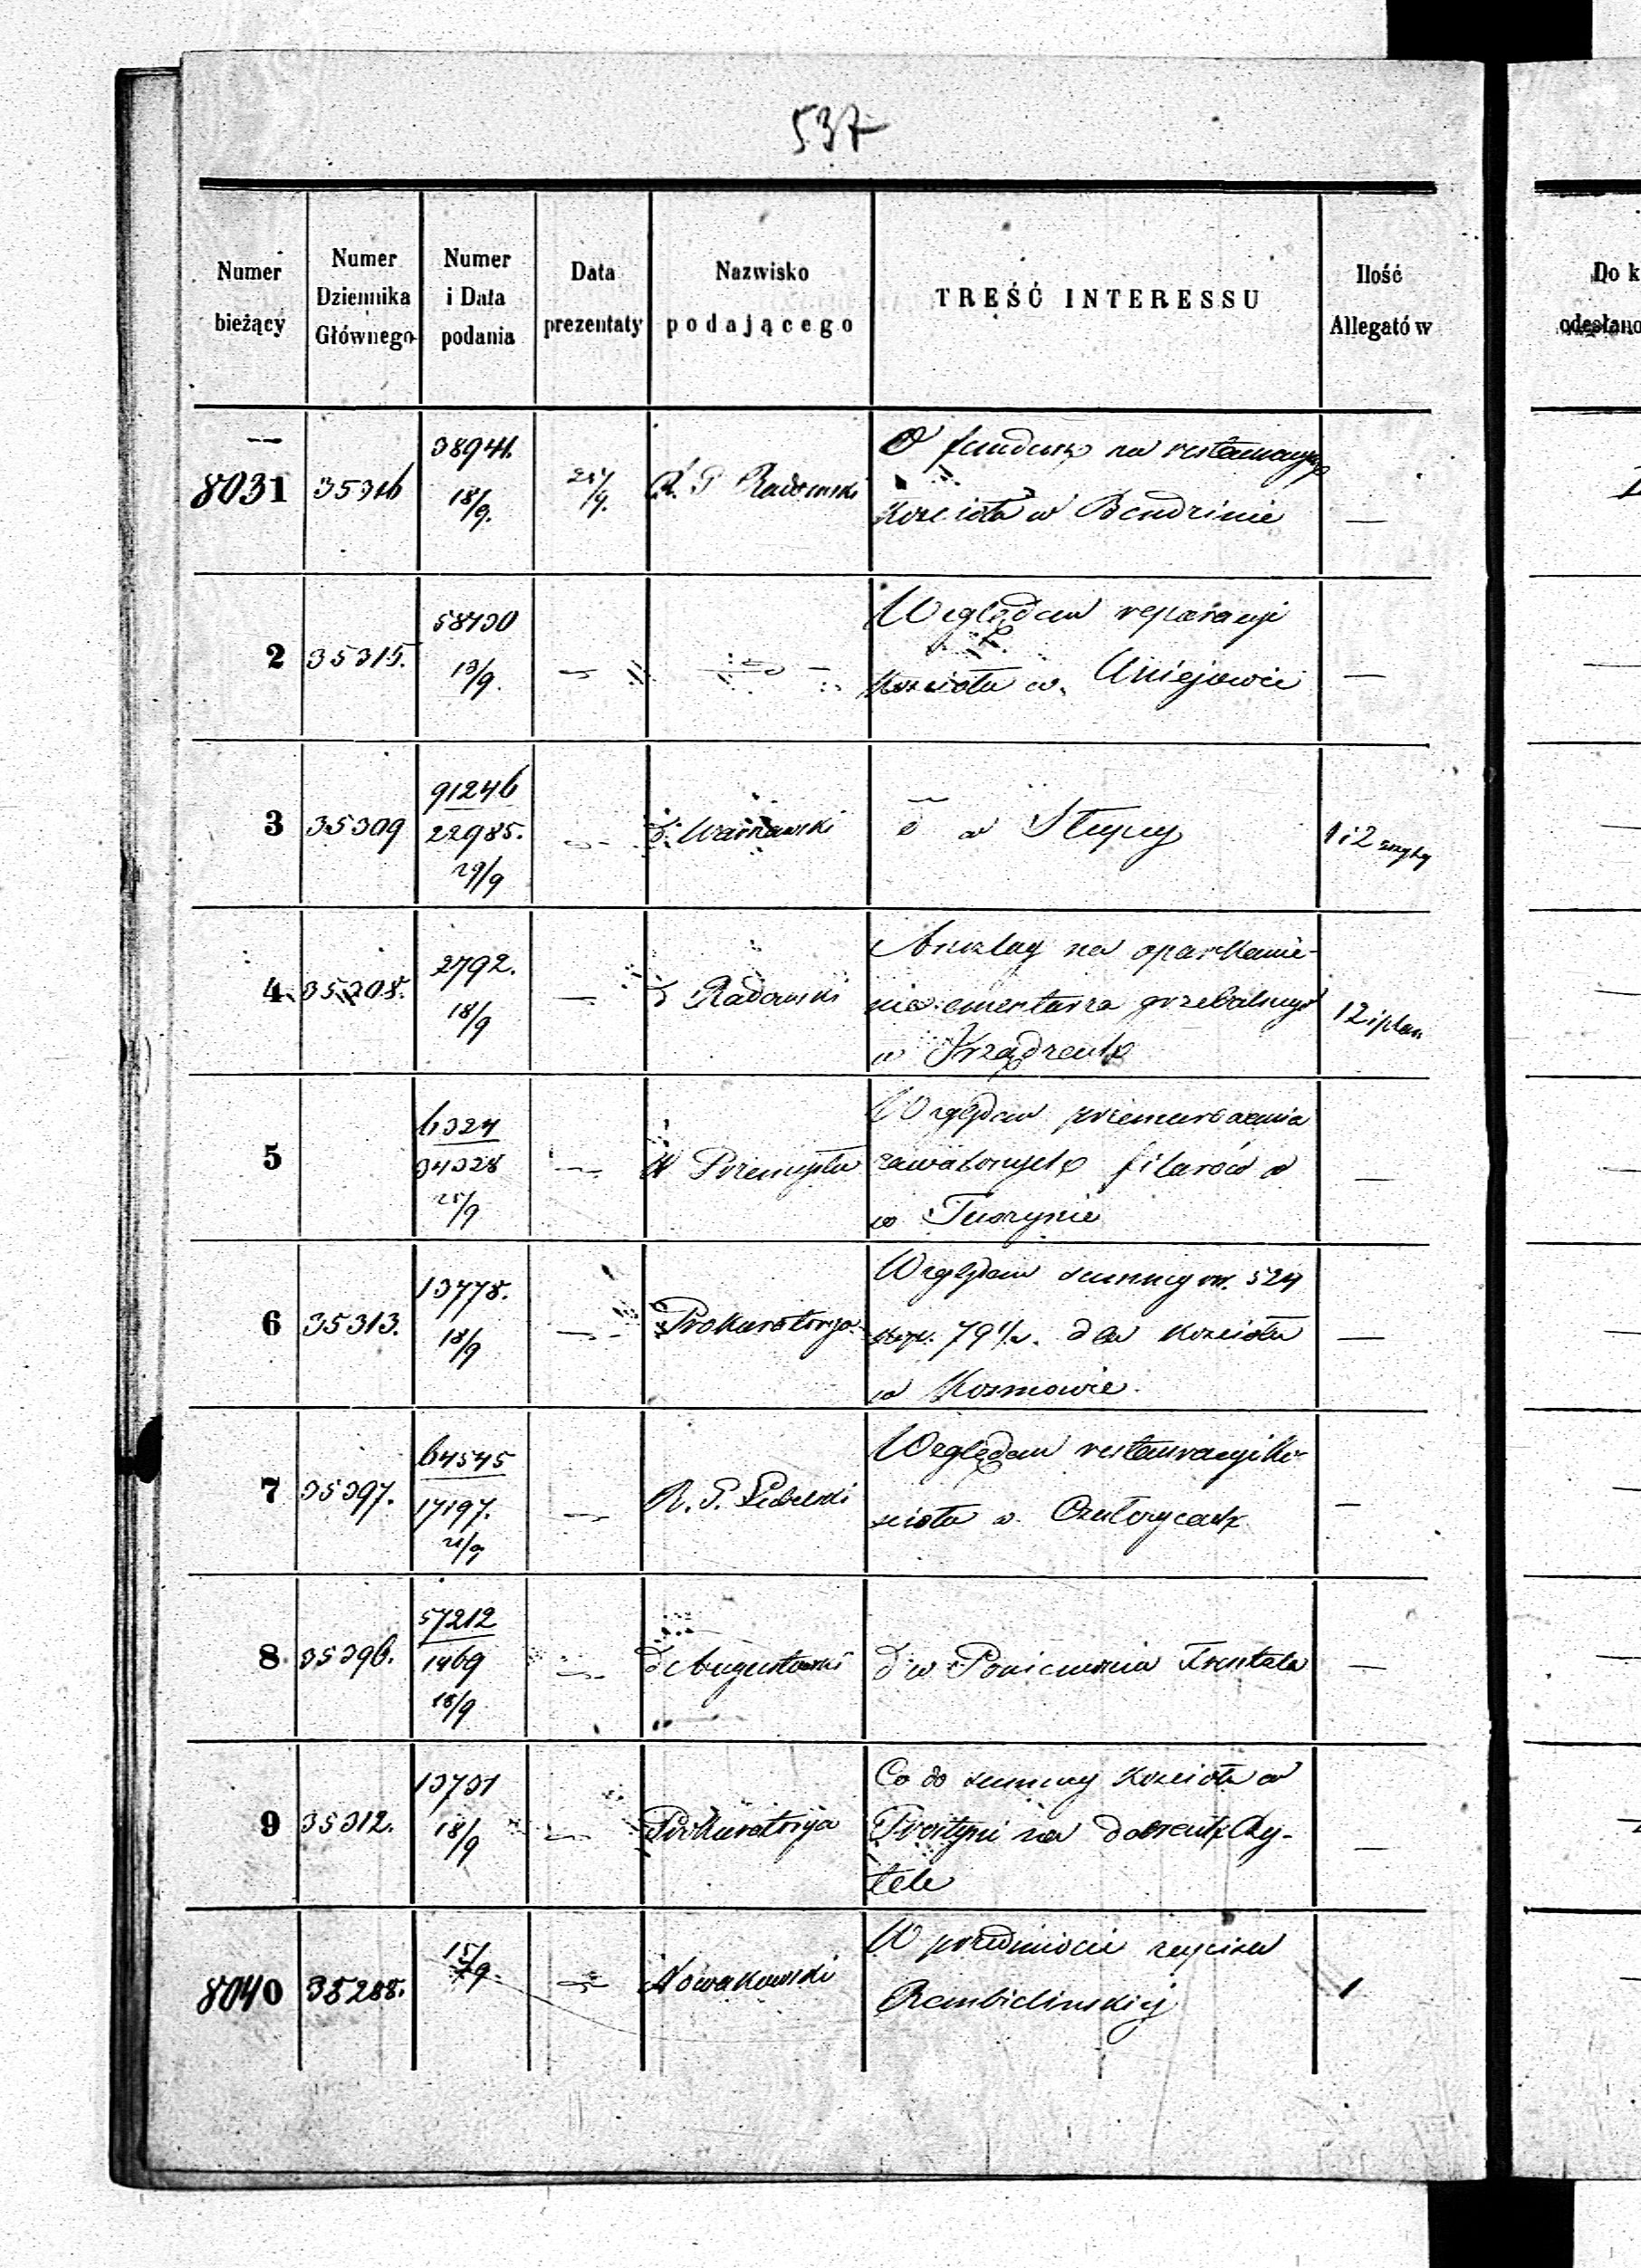 537
Numer bieżący
Numer Dziennika Głównego
Numer i Data podania
Data prezentaty
Nazwisko podającego
TREŚĆ INTERESSU
Ilość Allegatów
Do k
odesłano
8031 35316 38941. 18/9. 25/9. R. G. Radomski O fundusz na restauracyę
Kościoła w Bendzinie —
2 35315. 58130 13/9. — — Względem reperacyi
Kościoła w Uniejowie —
3 35309 91246 22985. 29/9 — d. Warszawski d w Słupcy 1 i 2 zszyty
4 35308. 2792. 18/9 — d Radomski Anszlag na oparkanie-
nie cmentarza grzebalnego 12 i plan
w Krządzeniu
5 6324 34328 25/9 — W Przemysłu Względem przemurowania
zawalonych filarów
w Tuszynie —
6 35313. 13778. 18/9 — Prokuratorya Względem summy rs. 524
kop. 79 1/2. dla Kościoła —
w Kosmowie.
7 35397. 64545 17197. 21/9 — R. G. Lubelski Względem restauracyi Ko-
ścioła w Czułczycach —
8 35396. 57212 1469 18/9 — d Augustowski d w Poniemonia Frentzla —
9 35312. 13731 18/9 — Prokuratorya Co do summy Kościoła w
Prostyni na dobrach Cey- —
tele
8040 35288. 15/9. — Nowakowski W przedmiocie zapisu
Rembielinskiej 1